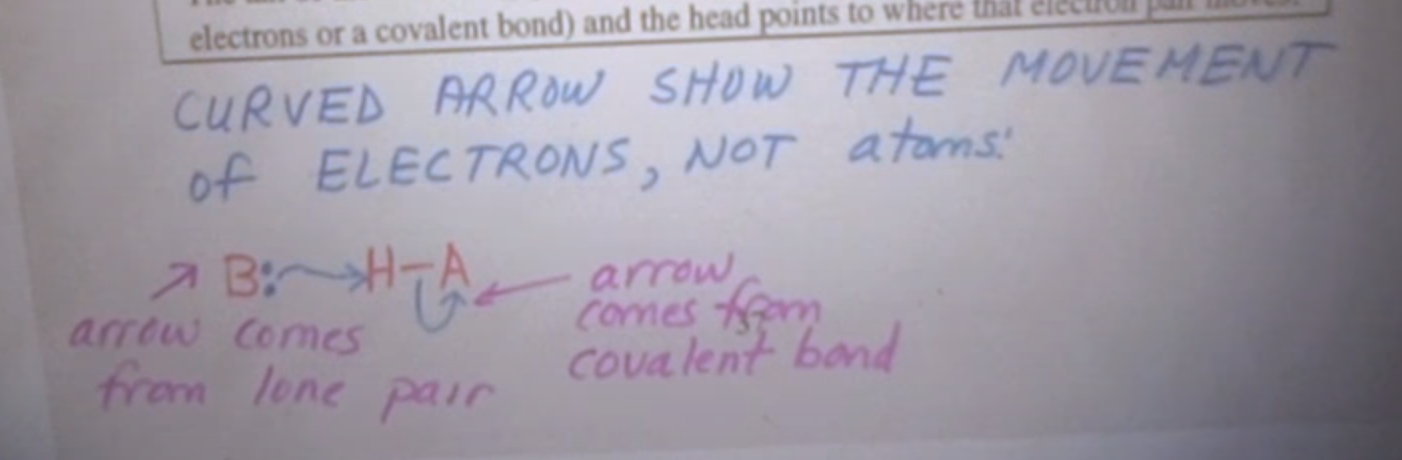 electrons or a covalent bond) and the head points to where that electron pair moves.
CURVED ARROW SHOW THE MOVEMENT
of ELECTRONS, NOT atoms!
B: H-A
arrow comes
from lone pair
arrow
comes from
covalent bond